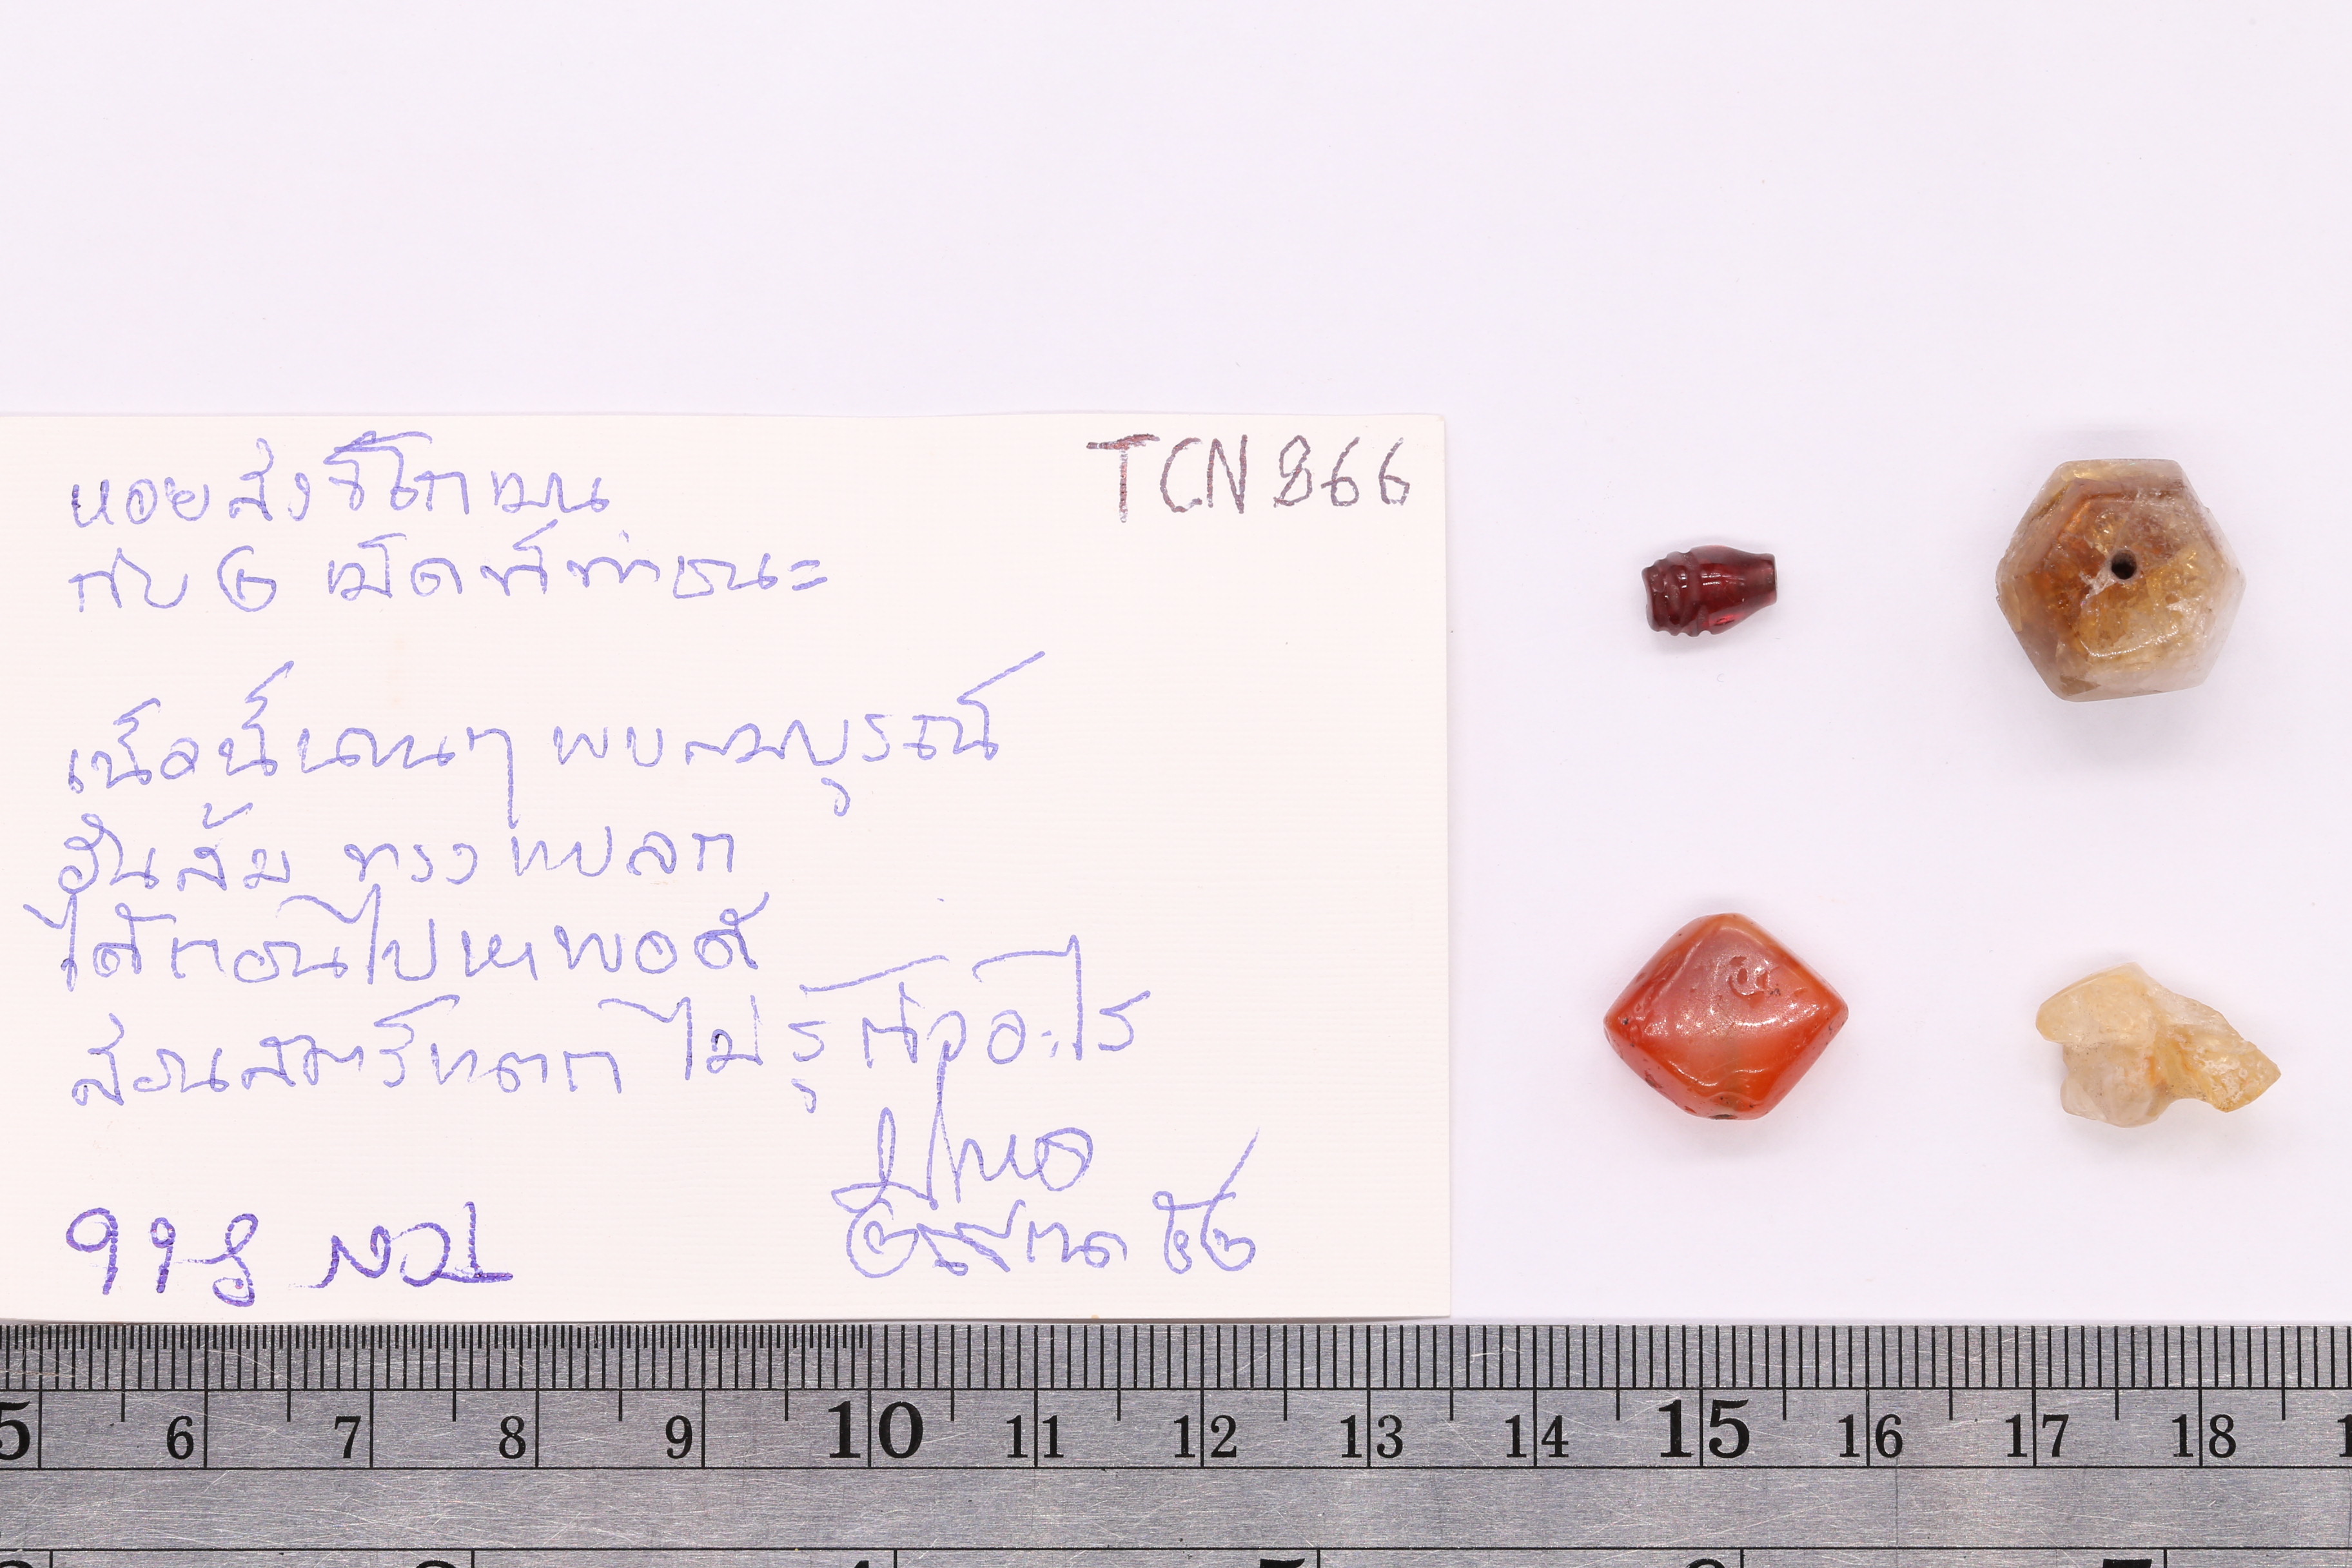 TCN 866
หอยสังข์โกเมน
กับ ๒ เม็ดที่ท่าชนะ
เนื้อนี้นานๆ พบสมบูรณ์
อันส้ม ทรงแปลก
ได้ตอนไปหาพอดี
ส่วนสัตว์แตก ไม่รู้ตัวอะไร
๒ มีนาคม ๕๒
5 6 7 8 9 10 11 12 13 14 15 16 17 18